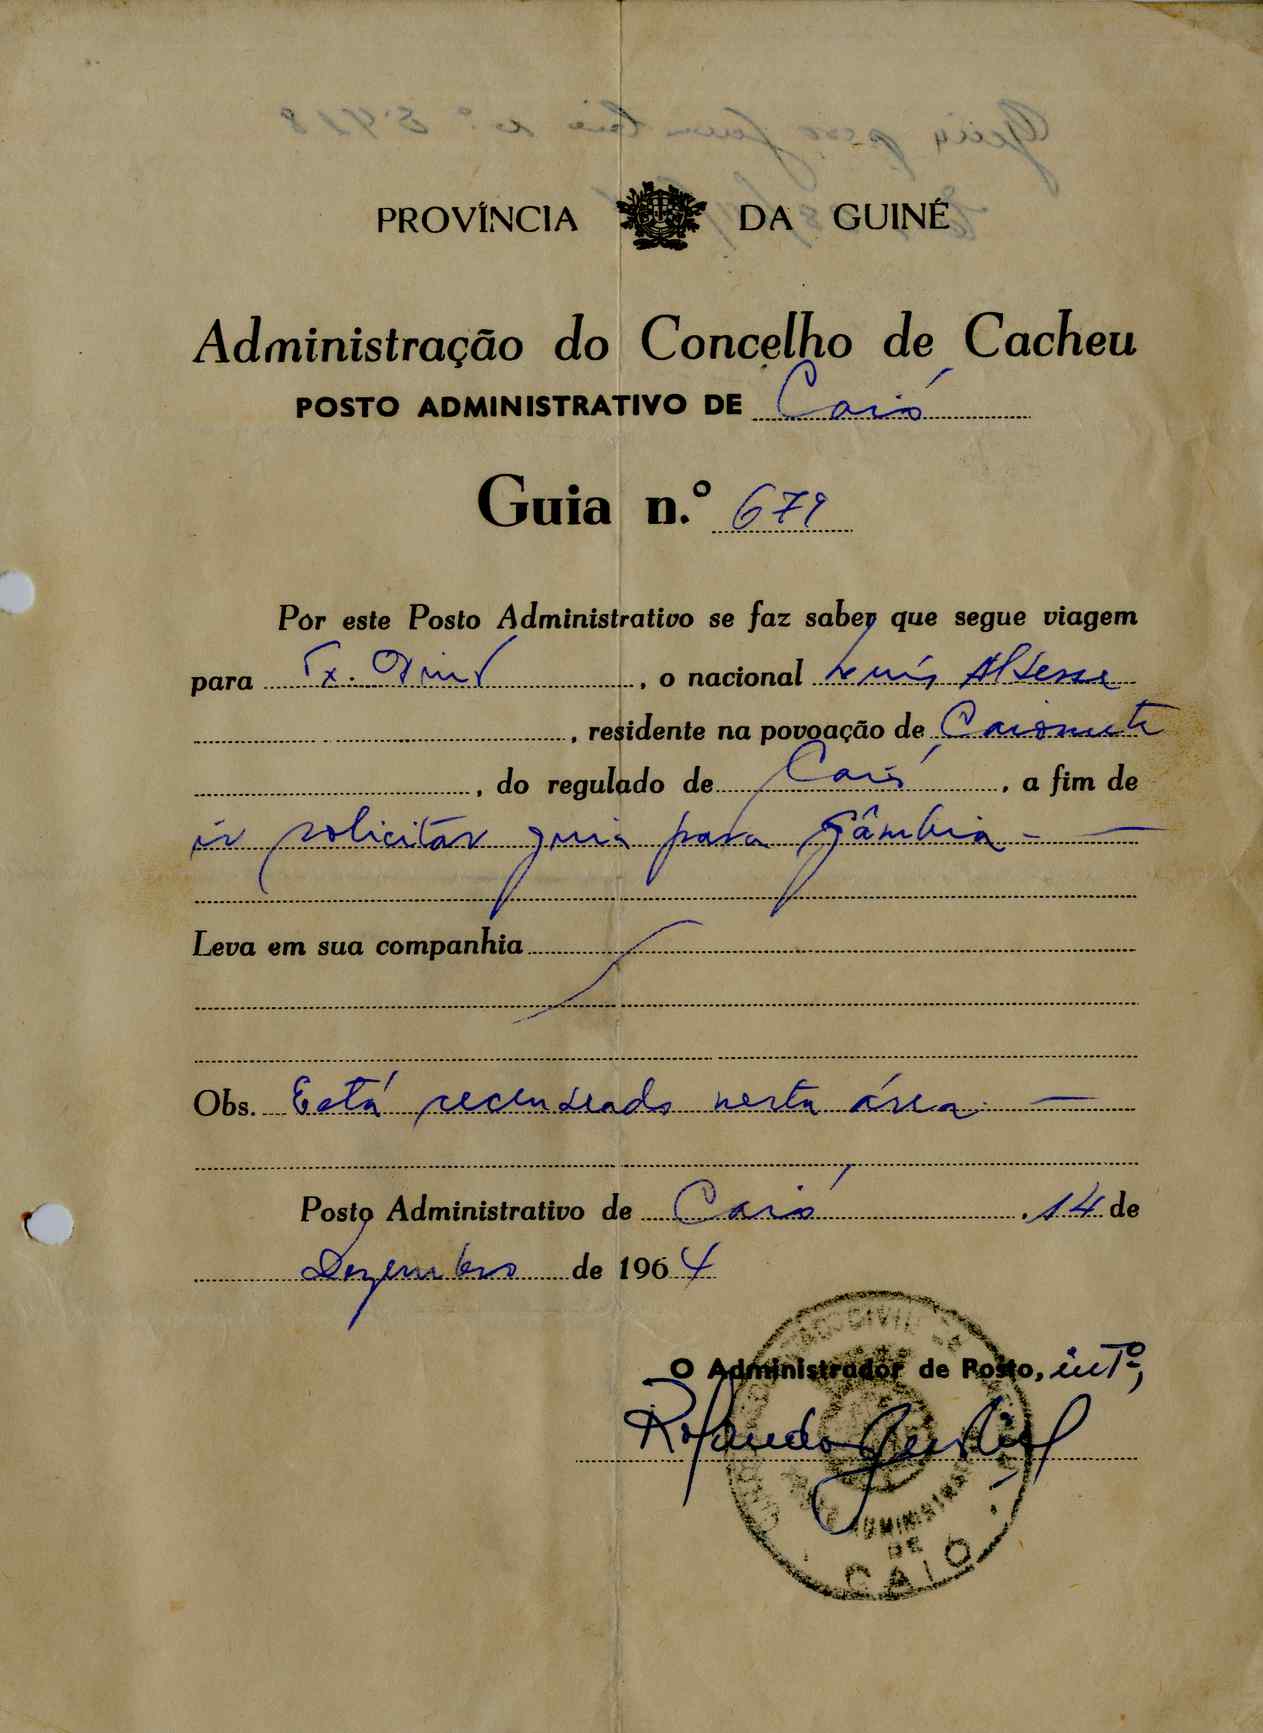 PROVÍNCIA DA GUINÉ
Administração do Concelho de Cacheu
POSTO ADMINISTRATIVO DE Caió
Guia n.º 679
Por este Posto Administrativo se faz saber que segue viagem
para Tx. Pint , o nacional Luís
, residente na povoação de
, do regulado de Caió , a fim de
ir solicitar guia para Gâmbia - —
Leva em sua companhia
Obs. Está recenseado nesta área. —
Posto Administrativo de Caió , 14 de
Dezembro de 1964
O Administrador de Posto, intº,
Rolando
ADMINISTRA
DE
CAIÓ